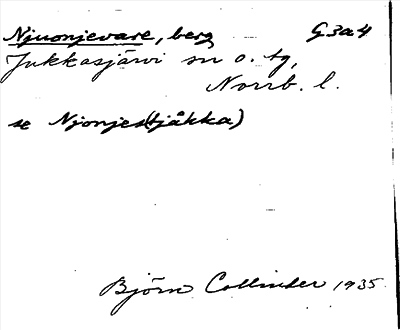 Njuonjevare, berg G3a4
Jukkasjärvi sn o. tg,
Norrb. l.
se Njonjes(tjåkka)
Björn Collinder 1935